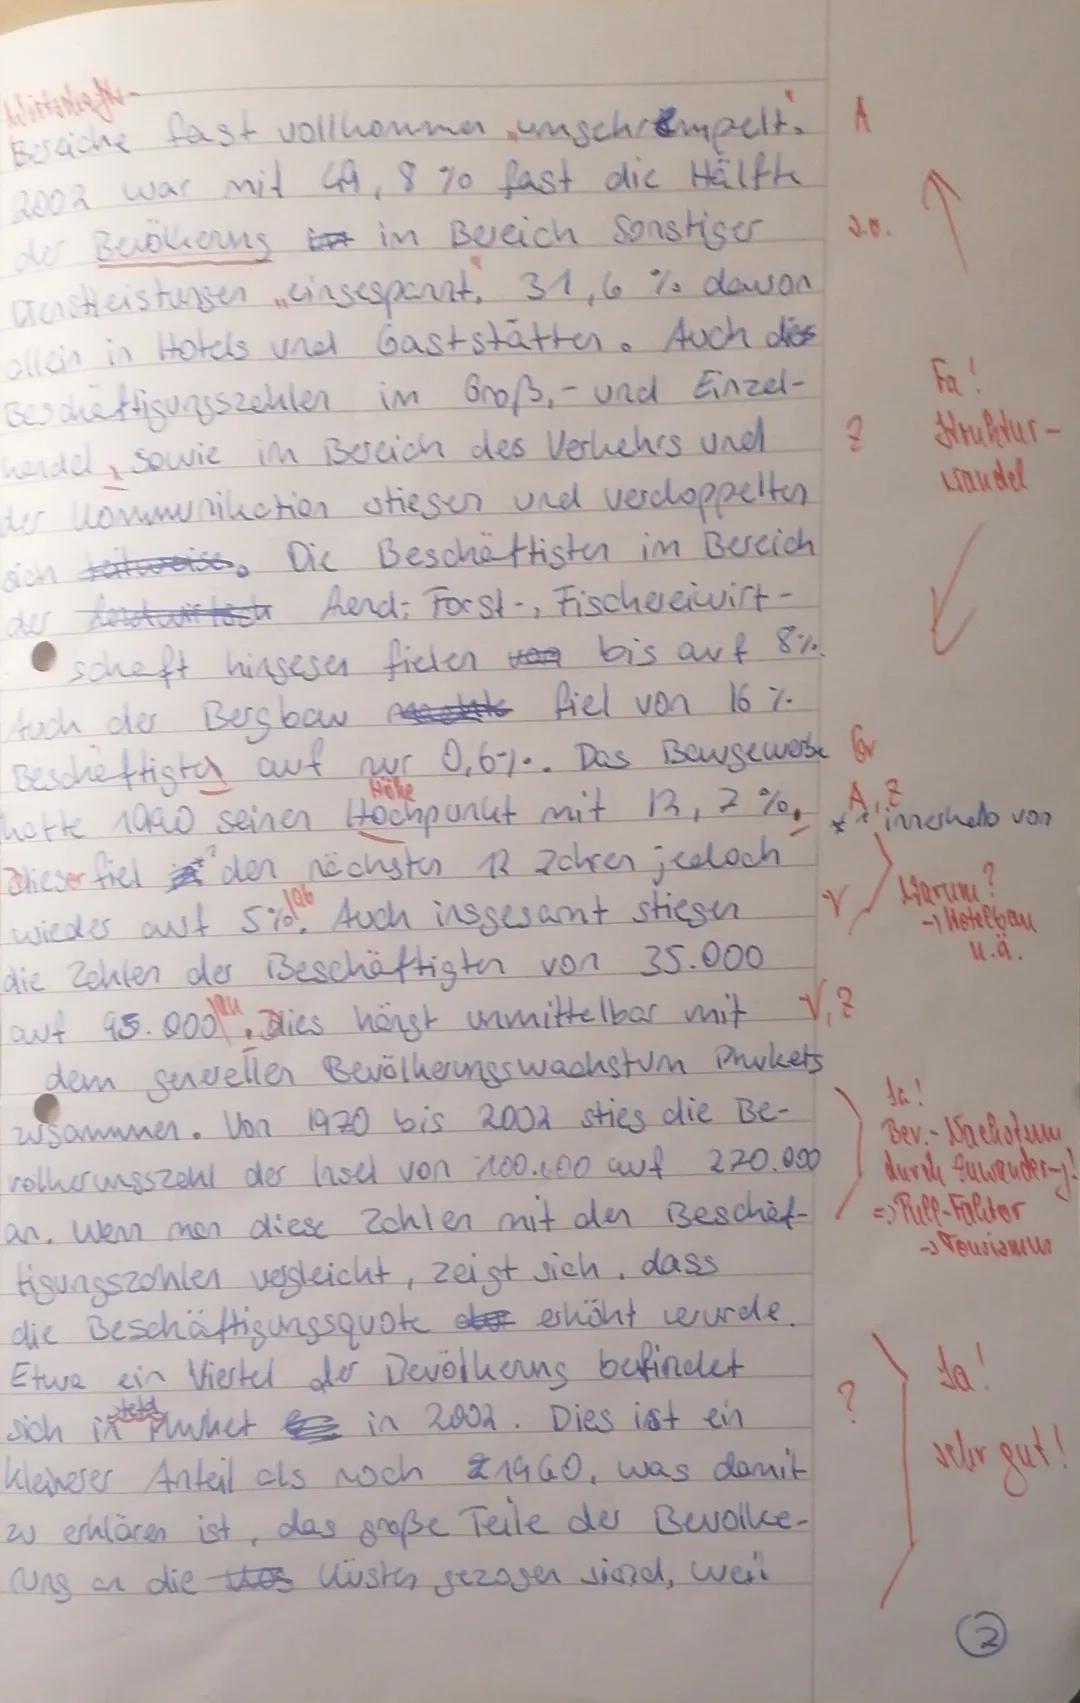 Wirtschafts-
Bereiche fast vollkommen „umschrempelt“. A
2002 war mit 49,8 % fast die Hälfte
der Bevölkerung im Bereich Sonstiger s.o.
Dienstleistungen „eingespannt“, 31,6 % davon
allein in Hotels und Gaststätten. Auch die
Beschäftigungszahlen im Groß,- und Einzel- Fa!
handel, sowie im Bereich des Verkehrs und Z Struktur-
der Kommunikation stiegen und verdoppelten wandel
sich. Die Beschäftigten im Bereich
der Land-, Forst-, Fischereiwirt-
schaft hingegen fielen bis auf 8%.
Auch der Bergbau fiel von 16 %
Beschäftigter auf nur 0,6%. Das Baugewerbe Gr
Höhe
hatte 1990 seinen Hochpunkt mit 12,7 %. A, Z * innerhalb von
Dieser fiel * den nächsten 12 Jahren jedoch
wieder auf 5% ab. Auch insgesamt stiegen V Warum?
→ Hotelbau
die Zahlen der Beschäftigten von 35.000 u.ä.
auf 95.000 an. Dies hängt unmittelbar mit V, Z
dem generellen Bevölkerungswachstum Phukets
zusammen. Von 1970 bis 2002 stieg die Be- Ja!
Bev.-Wachstum
völkerungszahl der Insel von 100.000 auf 270.000 durch Zuwander-g!
an. Wenn man diese Zahlen mit den Beschäf- => Pull-Faktor
→ Tourismus
tigungszahlen vergleicht, zeigt sich, dass
die Beschäftigungsquote erhöht wurde.
Etwa ein Viertel der Bevölkerung befindet Ja!
sich in Phuket in 2002. Dies ist ein ?
kleinerer Anteil als noch 1960, was damit sehr gut!
zu erklären ist, das große Teile der Bevölke-
rung an die Küsten gezogen sind, weil
2